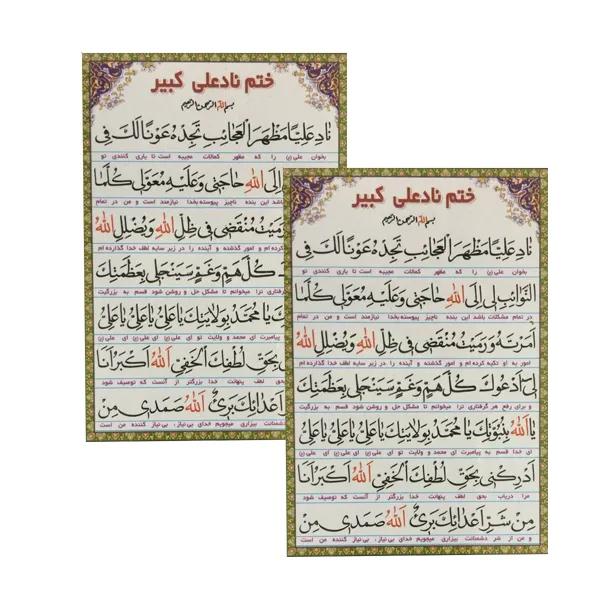 ختم ناد علی کبیر
بسم الله الرحمن الرحیم
نادِ عَلِیًّا مَظْهَرَ الْعَجائِبِ تَجِدْهُ عَوْنًا لَكَ فِی
بخوان علی (ع) را که مظهر کمالات عجیبه است تا یاری کنندی تو
اِلَی اللهِ حاجَتی وَ عَلَیْهِ مُعَوَّلی کُلَّما
باشد این بنده ناچیز پیوسته بخدا نیازمند است و من در تمام
رَمَیْتَ مُنْقَضی فی ظِلِّ اللهِ وَ یُضْلِلِ اللهُ
کُلُّ هَمٍّ وَ غَمٍّ سَیَنْجَلی بِعَظَمَتِکَ
ختم ناد علی کبیر
بسم الله الرحمن الرحیم
نادِ عَلِیًّا مَظْهَرَ الْعَجائِبِ تَجِدْهُ عَوْنًا لَكَ فِی
بخوان علی (ع) را که مظهر کمالات عجیبه است تا یاری کنندی تو
النَّوائِبِ لی اِلَی اللهِ حاجَتی وَ عَلَیْهِ مُعَوَّلی کُلَّما
در تمام مشکلات باشد این بنده ناچیز پیوسته بخدا نیازمند است و من در تمام
اَمَرْتَهُ وَ رَمَیْتَ مُنْقَضی فی ظِلِّ اللهِ وَ یُضْلِلِ اللهُ
امور به او تکیه کرده ام و امور گذشته و آینده را در زیر سایه لطف خدا گذارده ام
لی اَدْعُوكَ کُلُّ هَمٍّ وَ غَمٍّ سَیَنْجَلی بِعَظَمَتِکَ
و برای رفع هر گرفتاری ترا میخوانم تا مشکل حل و روشن شود قسم به بزرگیت
یا اَللهُ بِنُبُوَّتِکَ یا مُحَمَّدُ بِوِلایَتِکَ یا عَلِیُّ یا عَلِیُّ یا عَلِیُّ
ای خدا قسم به پیامبرت ای محمد و ولایت تو ای علی (ع) ای علی (ع) ای علی (ع)
اَدْرِکْنی بِحَقِّ لُطْفِکَ الْخَفِیِّ اَللهُ اَکْبَرُ اَنَا
مرا دریاب بحق لطف پنهانت خدا بزرگتر از آنست که توصیف شود
مِنْ شَرِّ اَعْدائِکَ بَرِیءٌ اَللهُ صَمَدی مِنْ
و من از شر دشمنانت بیزاری میجویم خدای بی نیاز، بی نیاز کننده من است